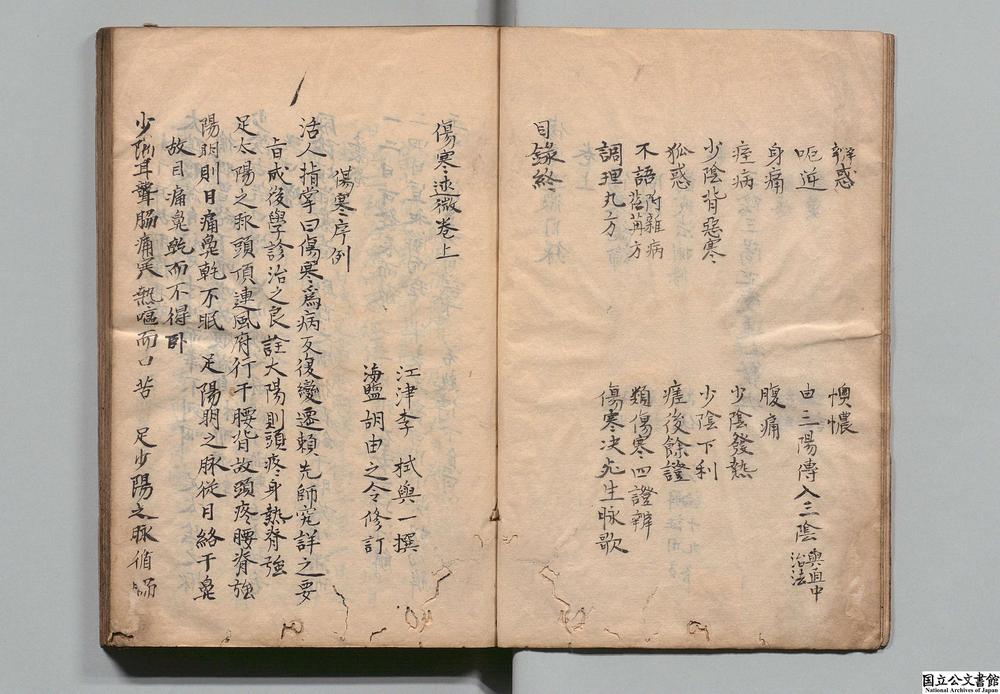 辯惑
懊憹
呃逆
由三陽傳入三陰 與直中治法
身痛
腹痛
痓病
少陰發熱
少陰背惡寒
少陰下利
狐惑
瘥後餘證
不語 附雜病舊苒方
類傷寒四證辨
調理丸方
傷寒决死生脉歌
目錄終
傷寒述微卷上
江津李 栻與一撰
海鹽胡由之令修訂
傷寒序例
活人指掌曰傷寒爲病反復變遷頼先師究詳之要
旨成後學診治之良詮大陽則頭疼身熱脊強
足太陽之脉頭頂連風府行于腰背故頭疼腰脊強
陽明則目痛鼻乾不眠 足陽明之脉從目絡于鼻
故目痛鼻乾而不得卧
少陽耳聾脇痛寒熱嘔而口苦 足少陽之脉循
国立公文書館
National Archives of Japan